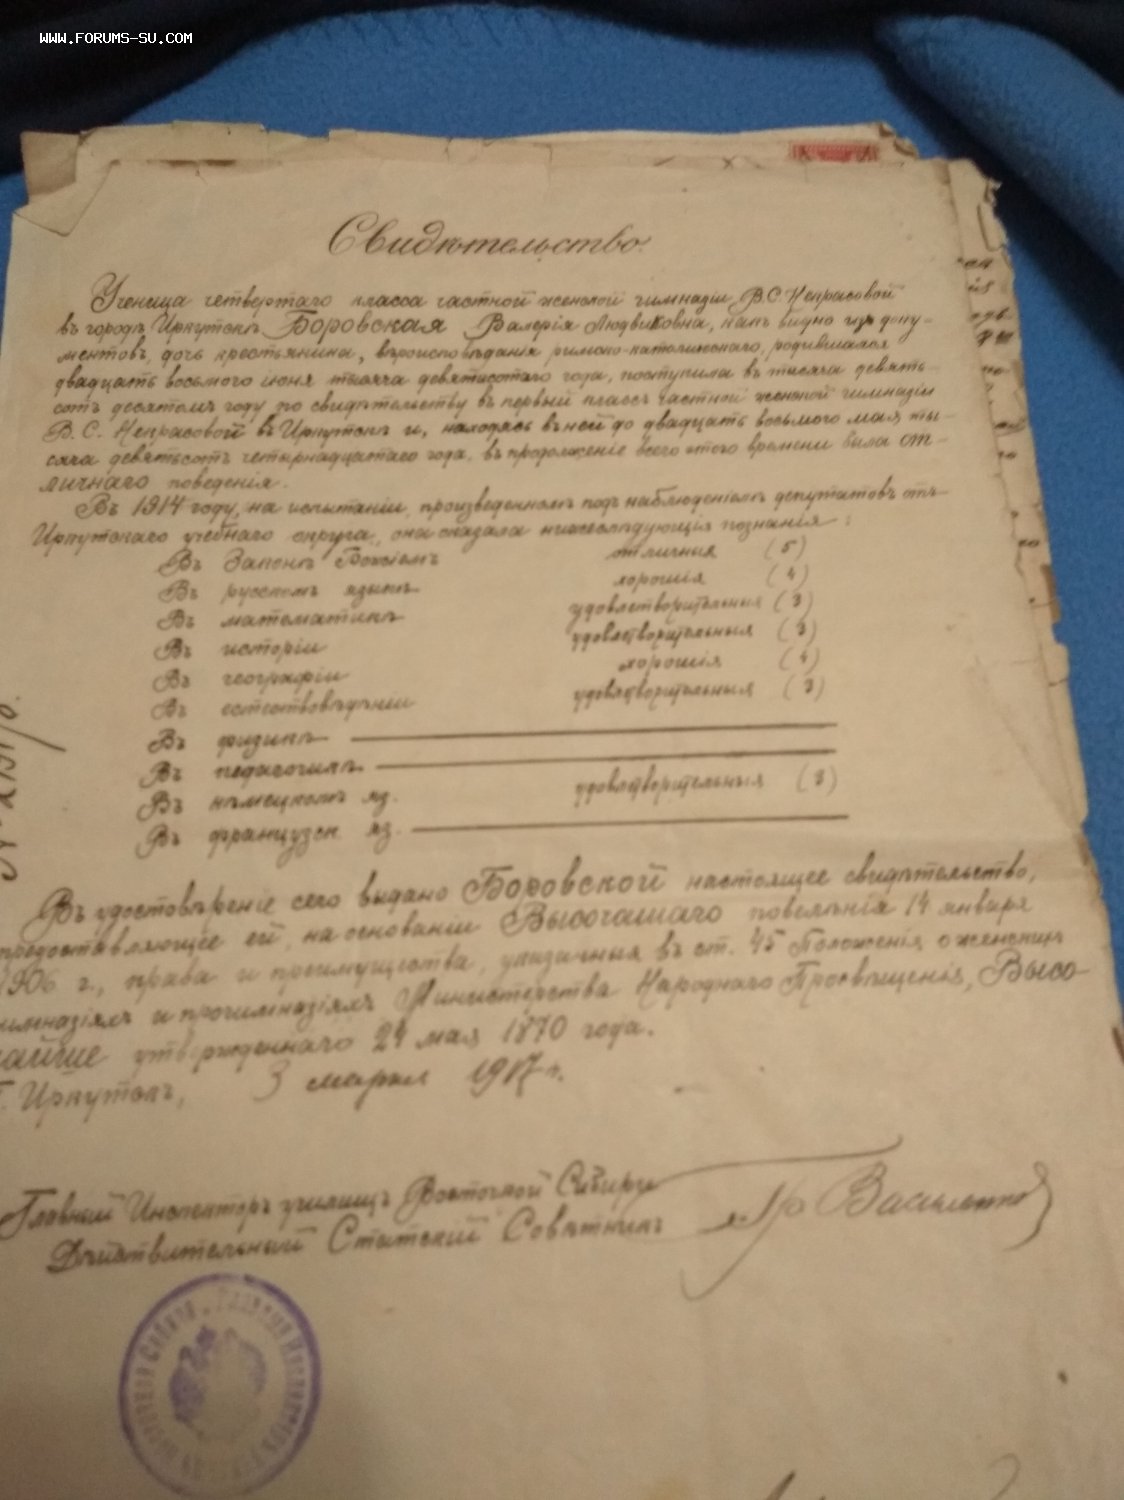 WWW.FORUMS-SU.COM
Свидѣтельство.
Ученица четвертаго класса частной женской гимназіи В.С. Некрасовой
въ городѣ Иркутскѣ, Боровская Валерія Людвиковна, какъ видно изъ доку-
ментовъ, дочь крестьянина, вѣроисповѣданія римско-католическаго, родившаяся
двадцать восьмого іюня тысяча девятисотаго года, поступила въ тысяча девять-
сотъ десятомъ году по свидѣтельству въ первый классъ частной женской гимназіи
В. С. Некрасовой въ Иркутскѣ и, находясь въ ней до двадцать восьмого мая ты-
сяча девятьсотъ четырнадцатаго года, въ продолженіе всего этого времени была от-
личнаго поведенія.
Въ 1914 году, на испытаніи, произведенномъ подъ наблюденіемъ депутатовъ отъ
Иркутскаго учебнаго округа, она оказала нижеслѣдующія познанія:
Въ Законѣ Божіемъ отличныя (5)
Въ русскомъ языкѣ хорошія (4)
Въ математикѣ удовлетворительныя (3)
Въ исторіи удовлетворительныя (3)
Въ географіи хорошія (4)
Въ естествовѣдѣніи удовлетворительныя (3)
Въ физикѣ
Въ педагогикѣ
Въ нѣмецкомъ яз. удовлетворительныя (3)
Въ французск. яз.
Въ удостовѣреніе сего выдано Боровской настоящее свидѣтельство,
предоставляющее ей, на основаніи Высочашаго повелѣнія 14 января
1906 г., права и преимущества, указанныя въ ст. 45 Положенія о женскихъ
гимназіяхъ и прогимназіяхъ Министерства Народнаго Просвѣщенія, Высо-
чайше утвержденнаго 24 мая 1870 года.
г. Иркутскъ, 3 марта 1917 г.
Главный Инспекторъ училищъ Восточной Сибири
Дѣйствительный Статскій Совѣтникъ